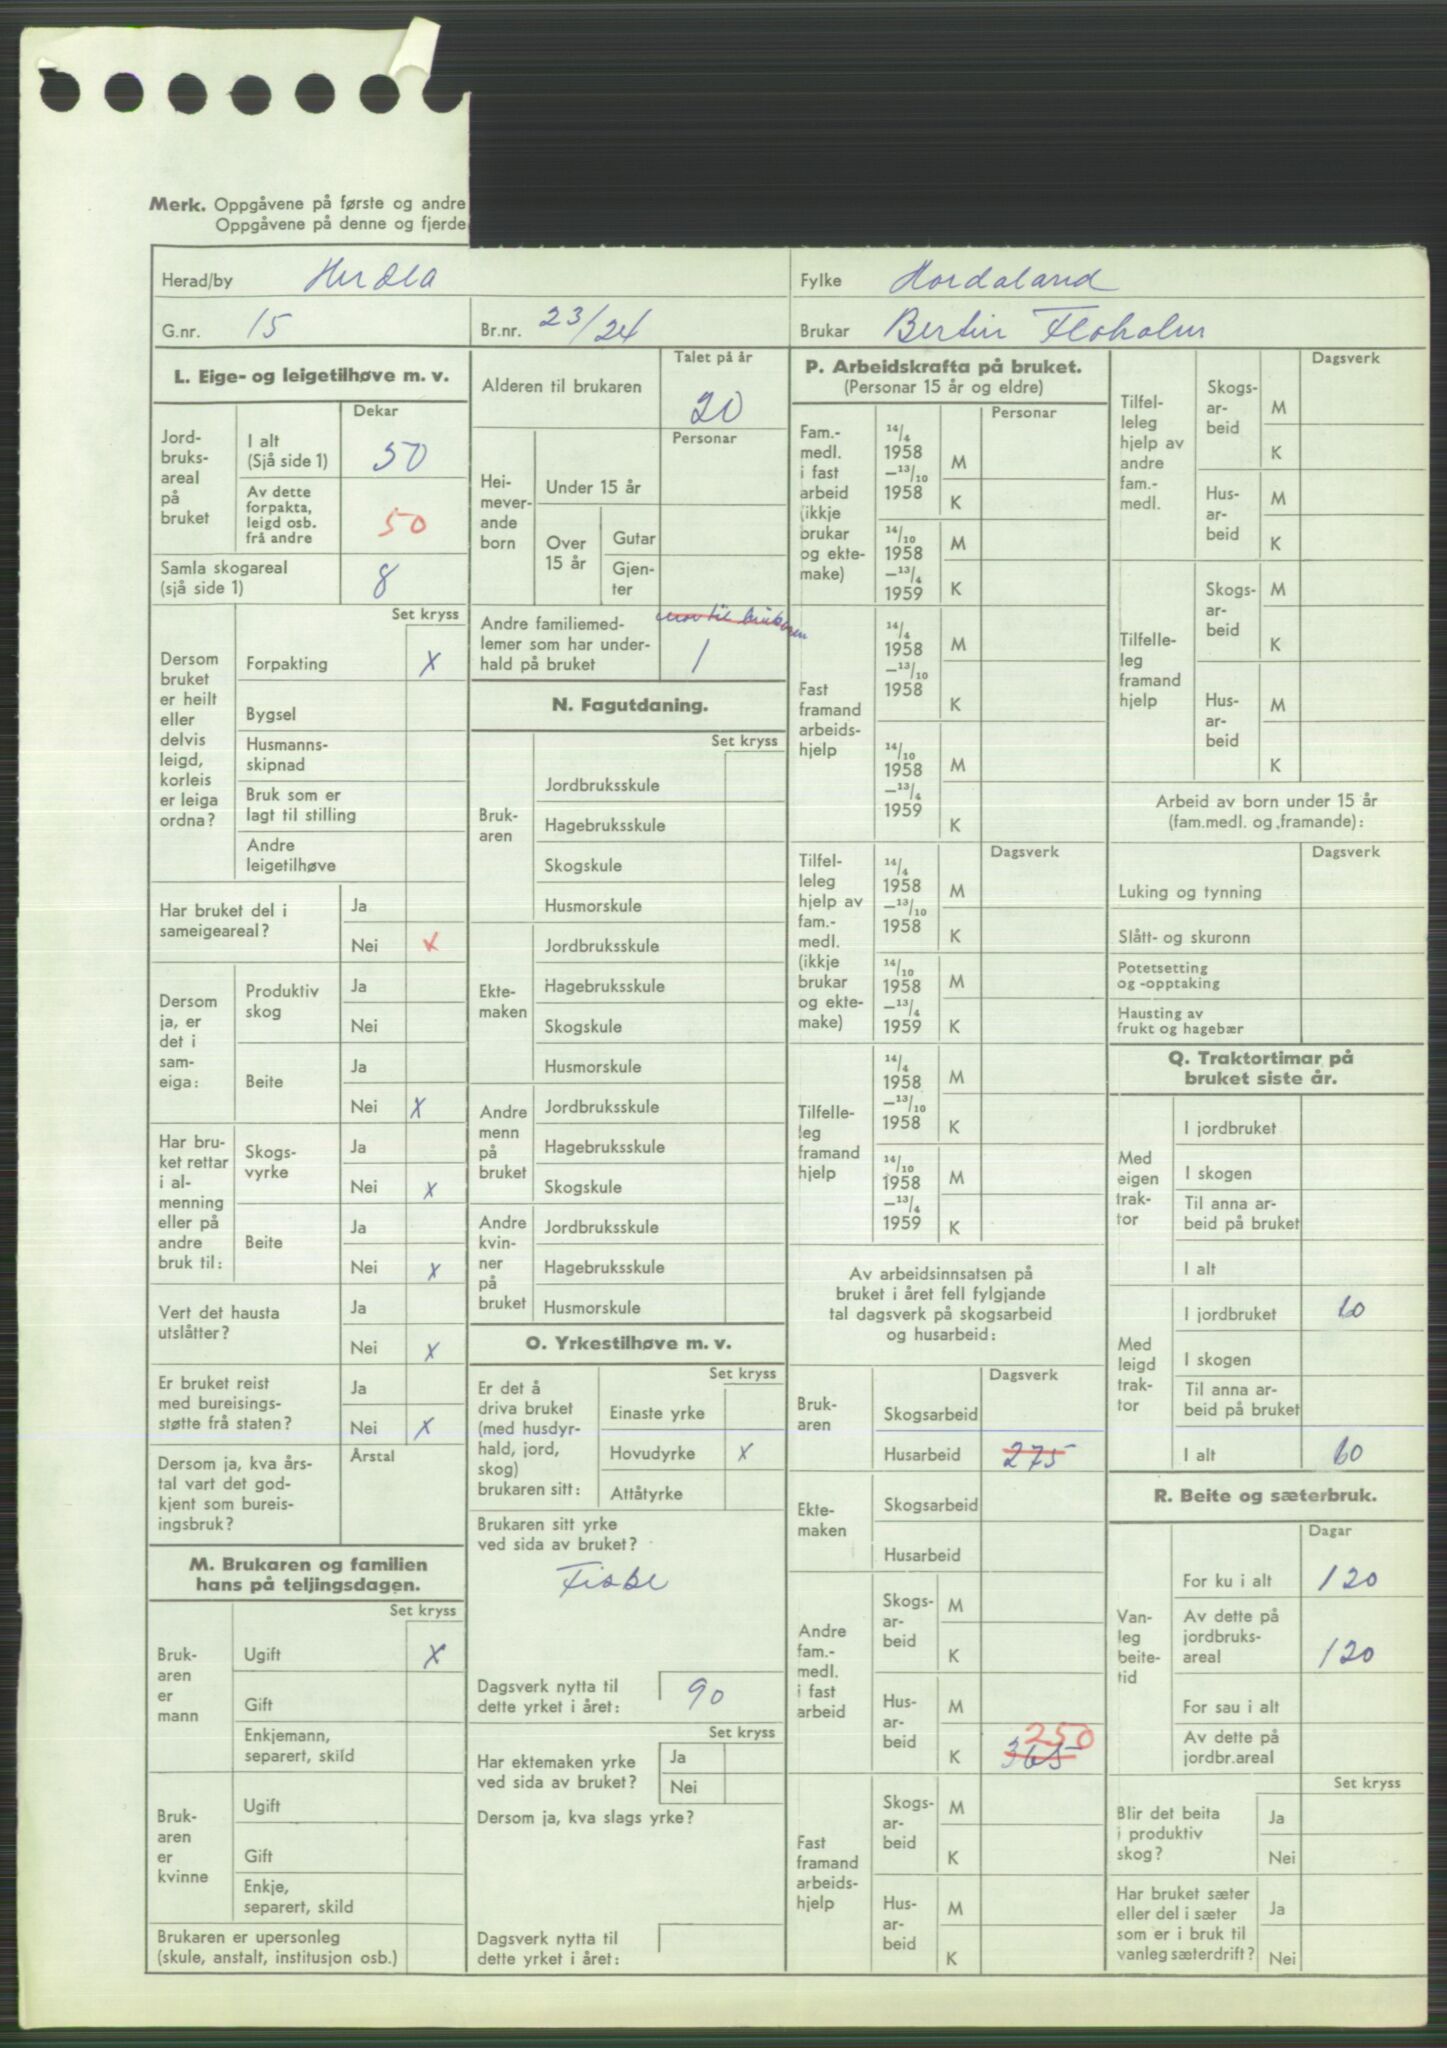 Merk. Oppgåvene på første og andre
Oppgåvene på denne og fjerde
Herad/by Herdla
Fylke Hordaland
G.nr. 15
Br.nr. 23/24
Brukar Bertin Floholm
L. Eige- og leigetilhøve m. v.
Dekar
Jord-
bruks-
areal
på
bruket
I alt
(Sjå side 1) 50
Av dette
forpakta,
leigd osb.
frå andre 50
Samla skogareal
(sjå side 1) 8
Set kryss
Dersom
bruket
er heilt
eller
delvis
leigd,
korleis
er leiga
ordna?
Forpakting X
Bygsel
Husmanns-
skipnad
Bruk som er
lagt til stilling
Andre
leigetilhøve
Har bruket del i
sameigeareal?
Ja
Nei X
Dersom
ja, er
det i
sam-
eiga:
Produktiv
skog
Ja
Nei
Beite
Ja
Nei X
Har bru-
ket rettar
i al-
menning
eller på
andre
bruk til:
Skogs-
vyrke
Ja
Nei X
Beite
Ja
Nei X
Vert det hausta
utslåtter?
Ja
Nei X
Er bruket reist
med bureisings-
støtte frå staten?
Ja
Nei X
Dersom ja, kva års-
tal vart det god-
kjent som bureis-
ingsbruk?
Årstal
M. Brukaren og familien
hans på teljingsdagen.
Set kryss
Bruk-
aren
er
mann
Ugift X
Gift
Enkjemann,
separert, skild
Bruk-
aren
er
kvinne
Ugift
Gift
Enkje,
separert, skild
Brukaren er upersonleg
(skule, anstalt, institusjon osb.)
Talet på år
Alderen til brukaren 20
Personar
Hei-
mever-
ande
born
Under 15 år
Over
15 år
Gutar
Gjen-
ter
Andre familiemed-
lemer som har under-
hald på bruket
mor til brukaren
1
N. Fagutdaning.
Set kryss
Bruk-
aren
Jordbruksskule
Hagebruksskule
Skogskule
Husmorskule
Ekte-
maken
Jordbruksskule
Hagebruksskule
Skogskule
Husmorskule
Andre
menn
på
bruket
Jordbruksskule
Hagebruksskule
Skogskule
Andre
kvin-
ner
på
bruket
Jordbruksskule
Hagebruksskule
Husmorskule
O. Yrkestilhøve m. v.
Set kryss
Er det å
driva bruket
(med husdyr-
hald, jord,
skog)
brukaren sitt:
Einaste yrke
Hovudyrke X
Attåtyrke
Brukaren sitt yrke
ved sida av bruket?
Fiske
Dagsverk nytta til
dette yrket i året: 90
Set kryss
Har ektemaken yrke
ved sida av bruket?
Ja
Nei
Dersom ja, kva slags yrke?
Dagsverk nytta til
dette yrket i året:
P. Arbeidskrafta på bruket.
(Personar 15 år og eldre)
Personar
Fam.-
medl.
i fast
arbeid
(ikkje
brukar
og ekte-
make)
14/4
1958
—13/10
1958
M
K
14/10
1958
—13/4
1959
M
K
Fast
framand
arbeids-
hjelp
14/4
1958
—13/10
1958
M
K
14/10
1958
—13/4
1959
M
K
Dagsverk
Tilfel-
leleg
hjelp av
fam.-
medl.
(ikkje
brukar
og ekte-
make)
14/4
1958
—13/10
1958
M
K
14/10
1958
—13/4
1959
M
K
Tilfelle-
leg
framand
hjelp
14/4
1958
—13/10
1958
M
K
14/10
1958
—13/4
1959
M
K
Av arbeidsinnsatsen på
bruket i året fell fylgjande
tal dagsverk på skogsarbeid
og husarbeid:
Dagsverk
Bruk-
aren
Skogsarbeid
Husarbeid 275
Ekte-
maken
Skogsarbeid
Husarbeid
Andre
fam.-
medl.
i fast
arbeid
Skogs-
ar-
beid
M
K
Hus-
ar-
beid
M
K
250
365
Fast
framand
arbeids-
hjelp
Skogs-
ar-
beid
M
K
Hus-
ar-
beid
M
K
Dagsverk
Tilfel-
leleg
hjelp av
andre
fam.-
medl.
Skogs-
ar-
beid
M
K
Hus-
ar-
beid
M
K
Tilfelle-
leg
framand
hjelp
Skogs-
ar-
beid
M
K
Hus-
ar-
beid
M
K
Arbeid av born under 15 år
(fam.medl. og framande):
Dagsverk
Luking og tynning
Slått- og skuronn
Potetsetting
og -opptaking
Hausting av
frukt og hagebær
Q. Traktortimar på
bruket siste år.
Med
eigen
trak-
tor
I jordbruket
I skogen
Til anna ar-
beid på bruket
I alt
Med
leigd
trak-
tor
I jordbruket 10
I skogen
Til anna ar-
beid på bruket
I alt 10
R. Beite og sæterbruk.
Dagar
Van-
leg
beite-
tid
For ku i alt 120
Av dette på
jordbruks-
areal 120
For sau i alt
Av dette på
jordbr.areal
Set kryss
Blir det beita
i produktiv
skog?
Ja
Nei
Har bruket sæter
eller del i sæter
som er i bruk til
vanleg sæterdrift?
Ja
Nei